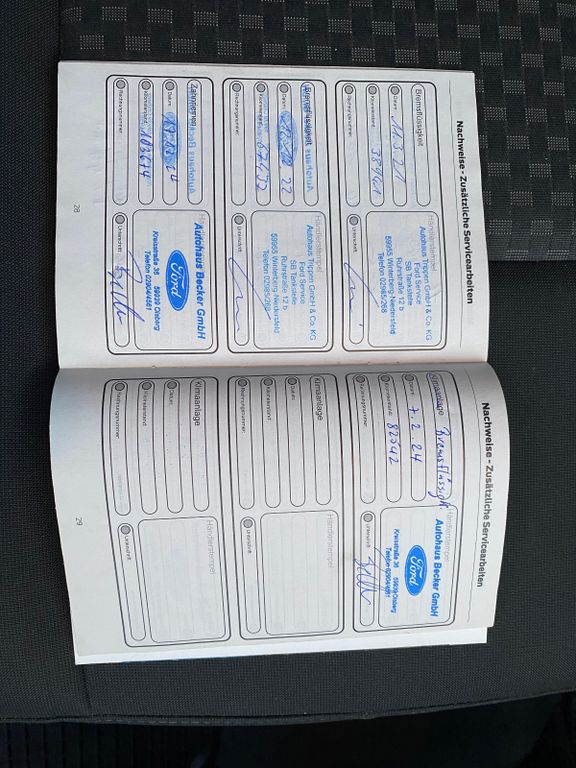 Nachweise - Zusätzliche Servicearbeiten
Bremsflüssigkeit
Datum: 11.3.21
Kilometerstand: 38961
Rechnungsnummer:
Händlerstempel
Autohaus Trippen GmbH & Co. KG
Ford Service
SB Tankstelle
Ruhrstraße 12 b
59955 Winterberg-Niedersfeld
Telefon 02985/268
Unterschrift:
Bremsflüssigkeit
Datum: 22
Kilometerstand:
Rechnungsnummer:
Händlerstempel
Autohaus Trippen GmbH & Co. KG
Ford Service
SB Tankstelle
Ruhrstraße 12 b
59955 Winterberg-Niedersfeld
Telefon 02985/268
Unterschrift:
Zahnriemen
Datum:
Kilometerstand: 103674
Rechnungsnummer:
Autohaus Becker GmbH
Ford
Kreisstraße 36 59939 Olsberg
Telefon 02904/4561
Unterschrift:
28
Nachweise - Zusätzliche Servicearbeiten
Klimaanlage Bremsflüssigk.
Datum: 7.2.24
Kilometerstand: 82542
Rechnungsnummer:
Händlerstempel
Autohaus Becker GmbH
Ford
Kreisstraße 36 59939 Olsberg
Telefon 02904/4561
Unterschrift:
Klimaanlage
Datum:
Kilometerstand:
Rechnungsnummer:
Händlerstempel
Unterschrift:
Klimaanlage
Datum:
Kilometerstand:
Rechnungsnummer:
Händlerstempel
Unterschrift:
29